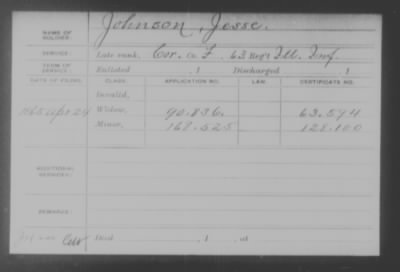 NAME OF SOLDIER: Johnson, Jesse.
SERVICE: Late rank, Cor. Co. F, 63 Reg't Ill. Inf.
TERM OF SERVICE: Enlisted , 1 Discharged 1
DATE OF FILING. CLASS. APPLICATION NO. LAW. CERTIFICATE NO.
Invalid,
1865 Apr 24 Widow, 90.836. 63.594
Minor, 168.525 128.100
ADDITIONAL SERVICES:
REMARKS:
Died , 1 , at